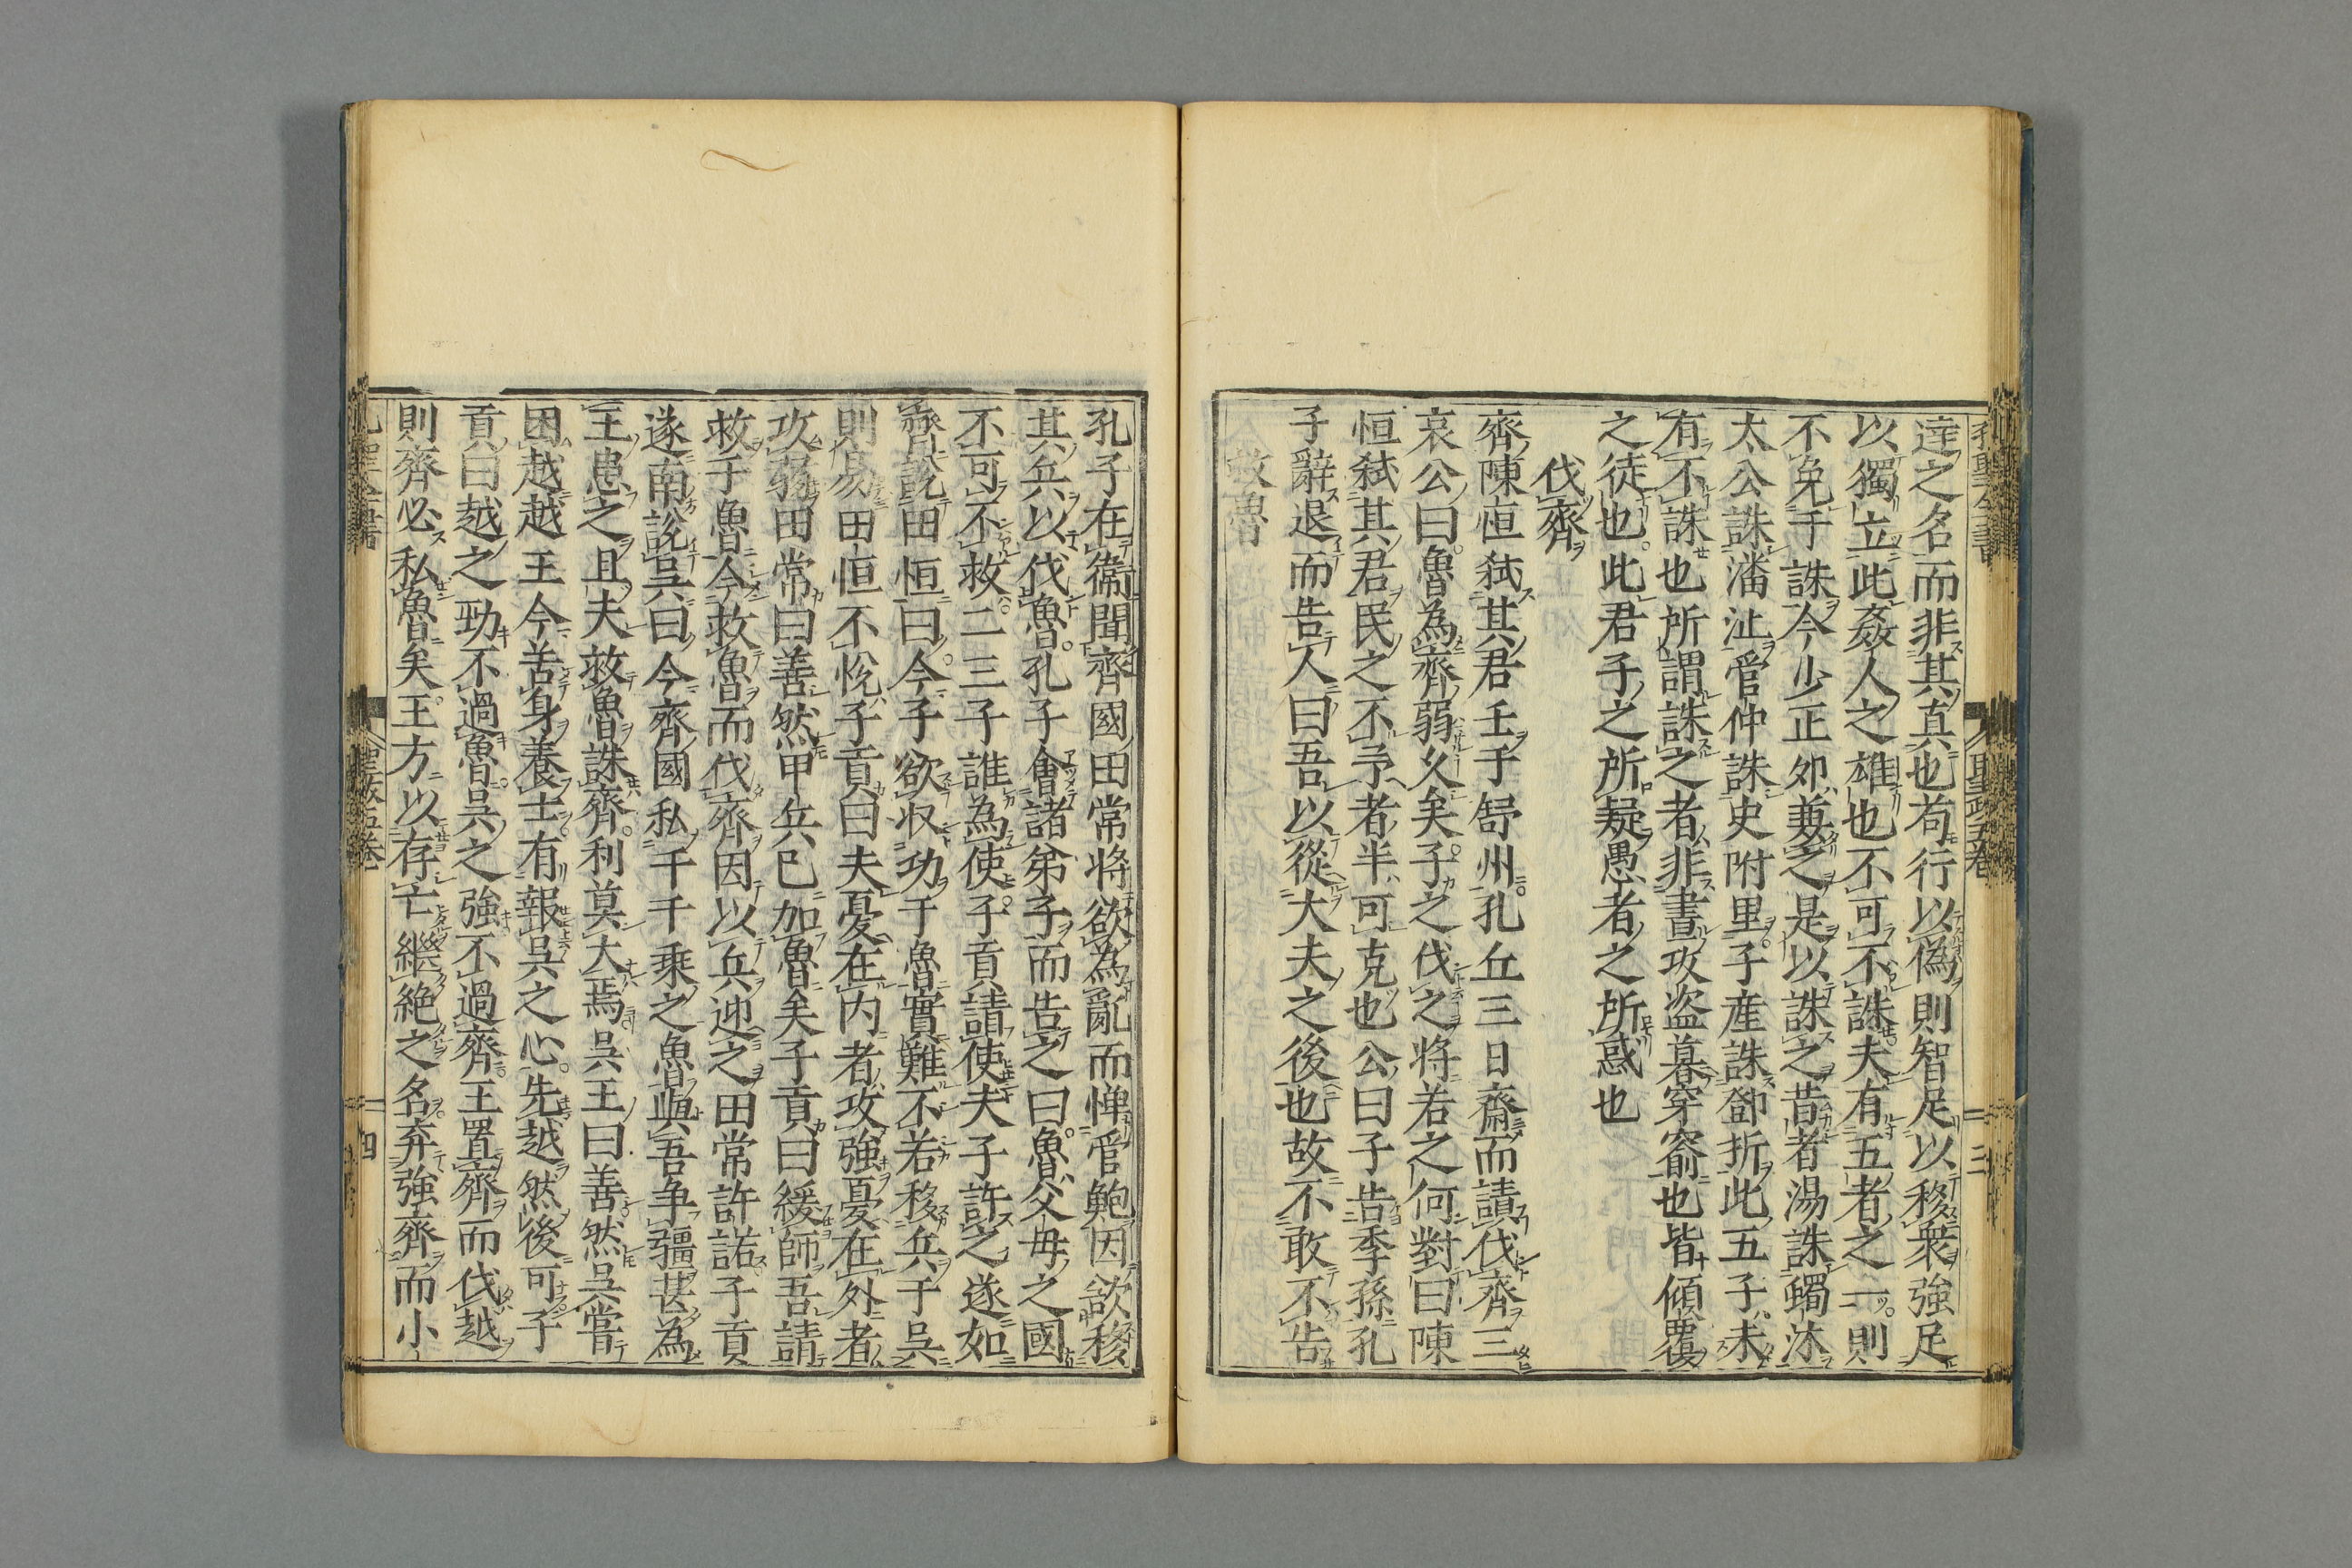 達之名而非其真也苟行以偽則智足以移衆強足
以獨立此姦人之雄也不可不誅夫有五者之一則
不免于誅今少正夘兼之是以誅之昔者湯誅蠋沐
太公誅潘沚管仲誅史附里子産誅鄧折此五子未
有不誅也所謂誅之者非晝攻盗暮穿窬也皆傾覆
之徒也此君子之所疑愚者之所惑也
伐齊
齊陳恒弑其君壬于舒州孔丘三日齋而請伐齊三
哀公曰魯為齊弱久矣子之伐之将若之何對曰陳
恒弑其君民之不予者半可克也公曰子告季孫孔
子辭退而告人曰吾以從大夫之後也故不敢不告
救魯
孔子在衞聞齊國田常将欲為亂而憚管鮑因欲移
其兵以伐魯孔子會諸弟子而告之曰魯父母之國
不可不救二三子誰為使子貢請使夫子許之遂如
齊説田恒曰今子欲収功于魯實難不若移兵于吳
則易田恒不悅子貢曰夫憂在内者攻強憂在外者
攻弱田常曰善然甲兵已加魯矣子貢曰緩師吾請
救于魯令救魯而伐齊因以兵迎之田常許諾子貢
遂南説吳曰今齊國私千千乗之魯與吾争疆甚為
王患之且夫救魯誅齊利莫大焉吳王曰善然吳嘗
困越越王今苦身養士有報吳之心先越然後可子
貢曰越之勁不過魯吳之強不過齊王置齊而伐越
則齊必私魯矣王方以存亡繼絶之名弃強齊而小
四